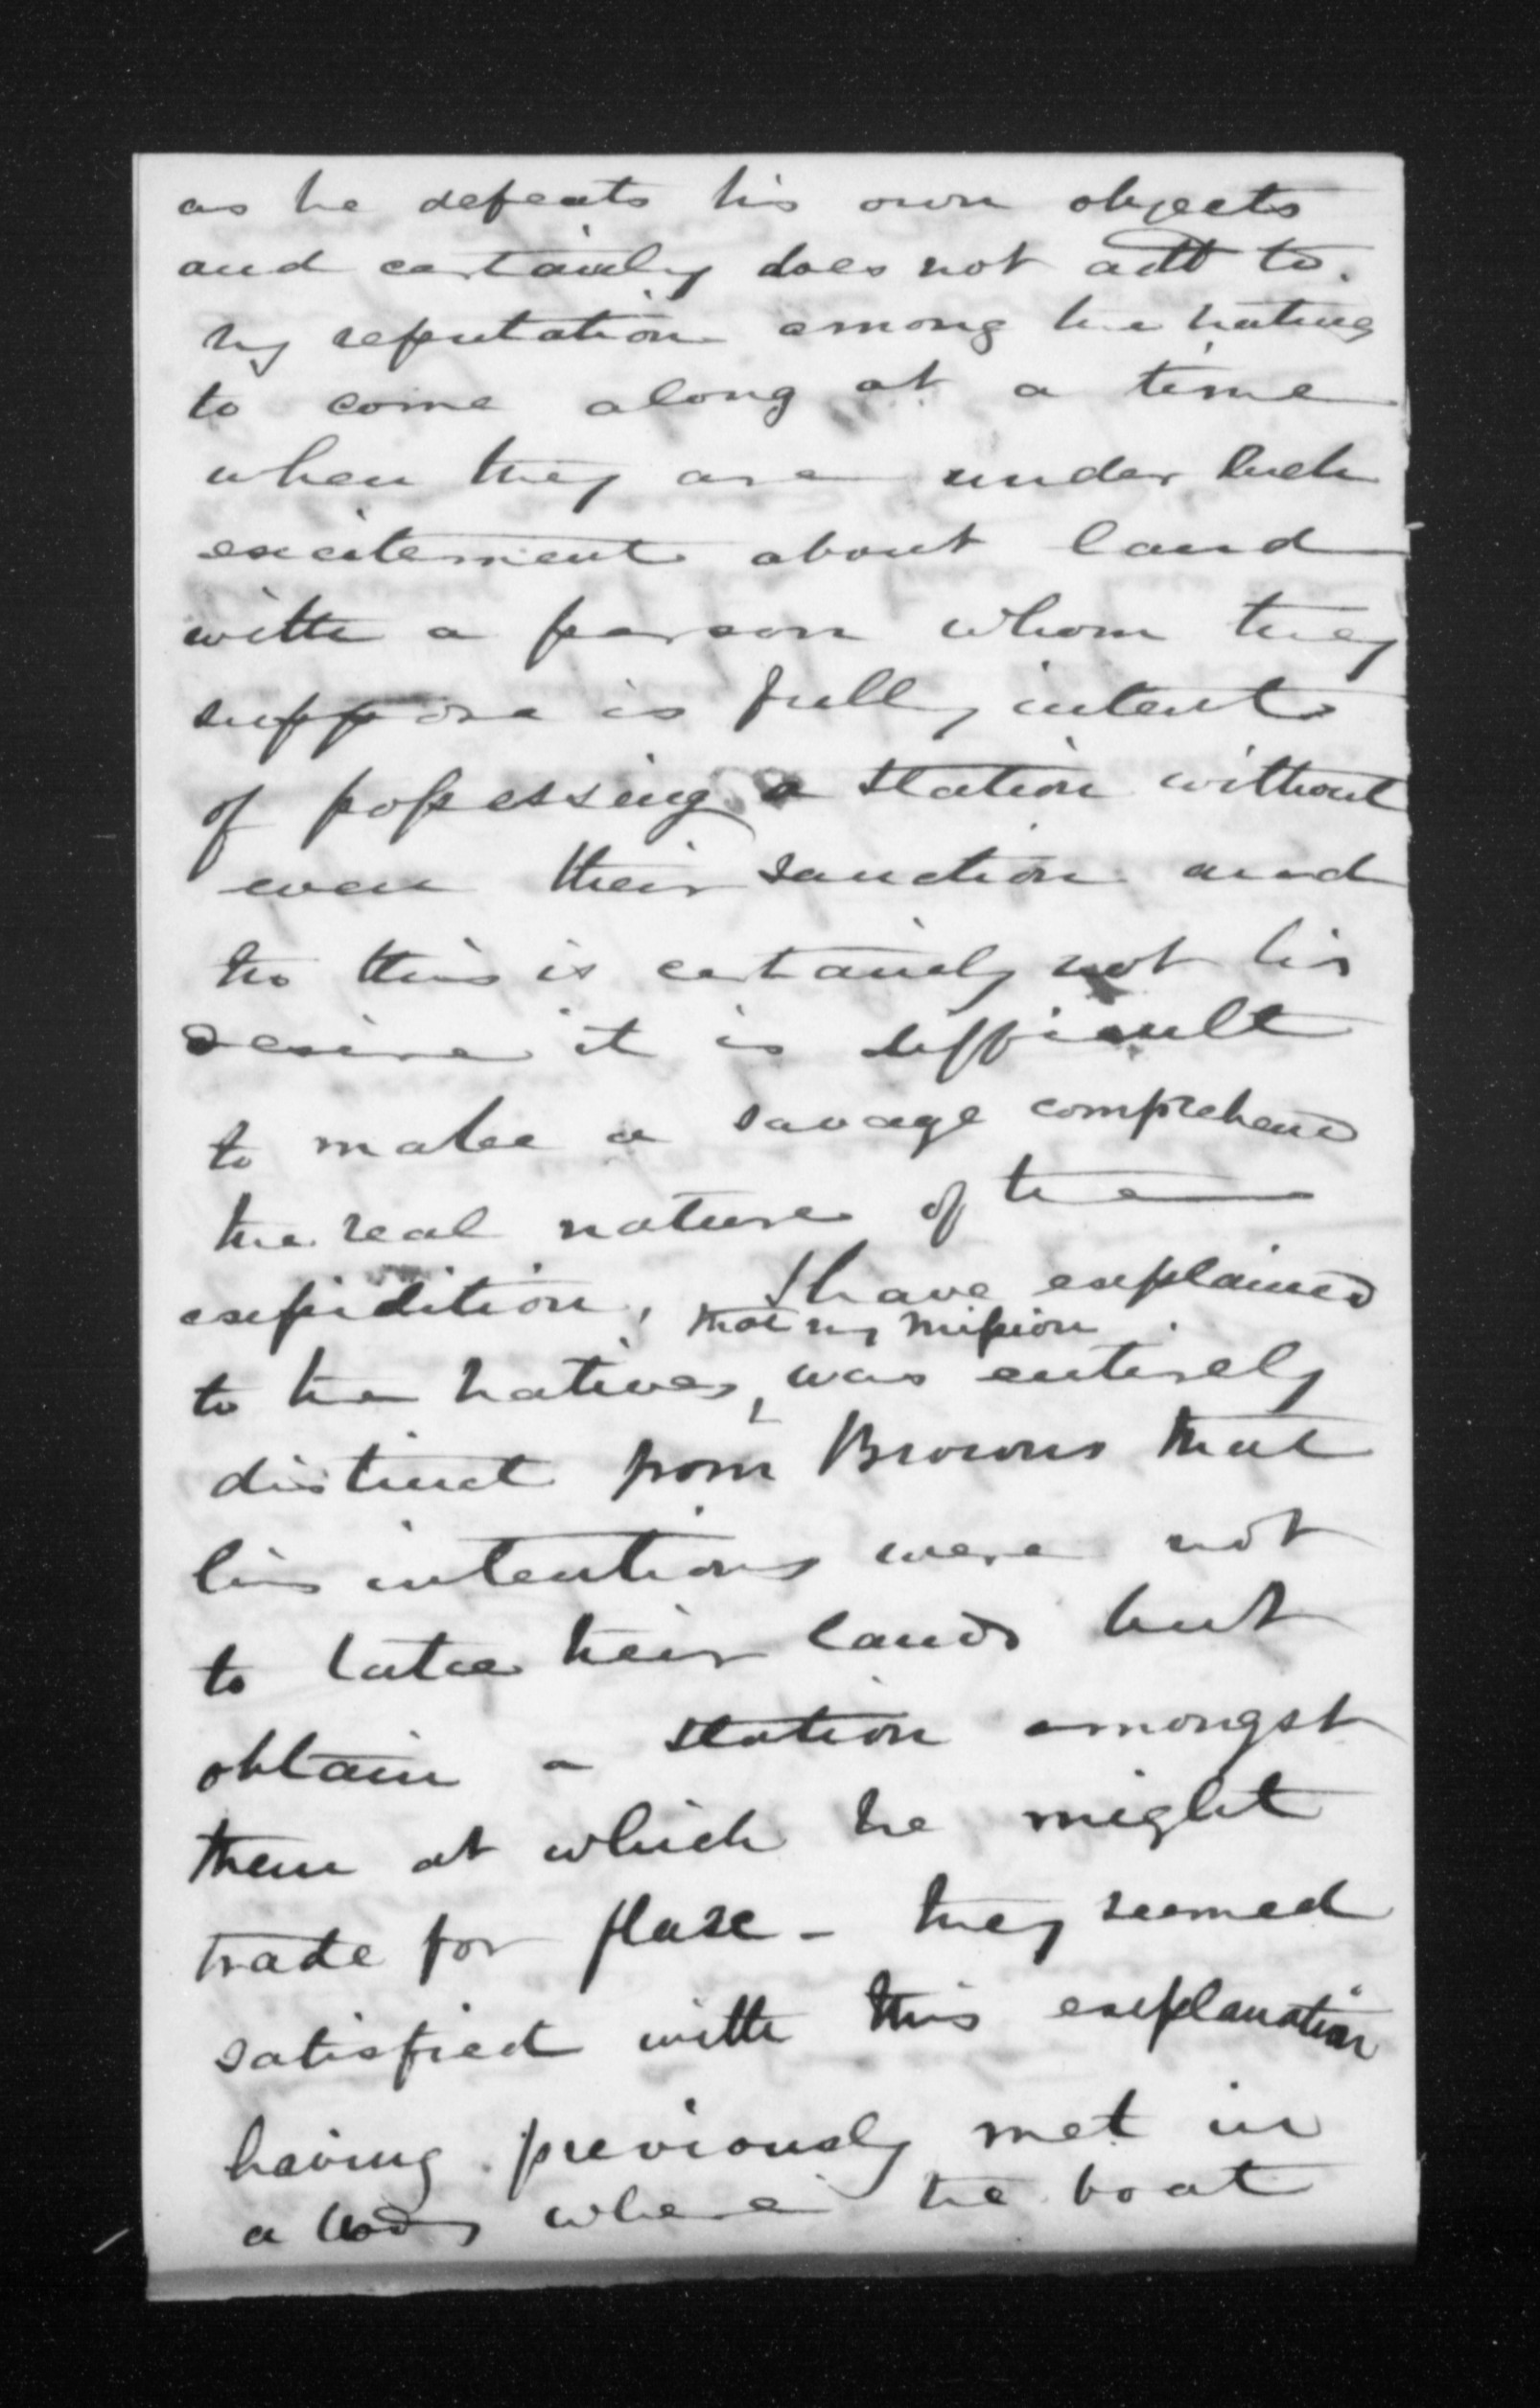 as he defeats his own objects
and certainly does not add to
my reputation among the natives
to come along at a time
when they are under such
excitement about land
with a person whom they
suppose is fully intent
of possessing a station without
even their sanction and
tho this is certainly not his
desire it is difficult
to make a savage comprehend
the real nature of the
expidition, I have explained
that my mission
to the natives, was entirely
distinct from Browns that
his intentions were not
to take their lands but
obtain a station amongst
them at which he might
trade for flase - they seemed
satisfied with this explanation
having previously met in
a body where the boat